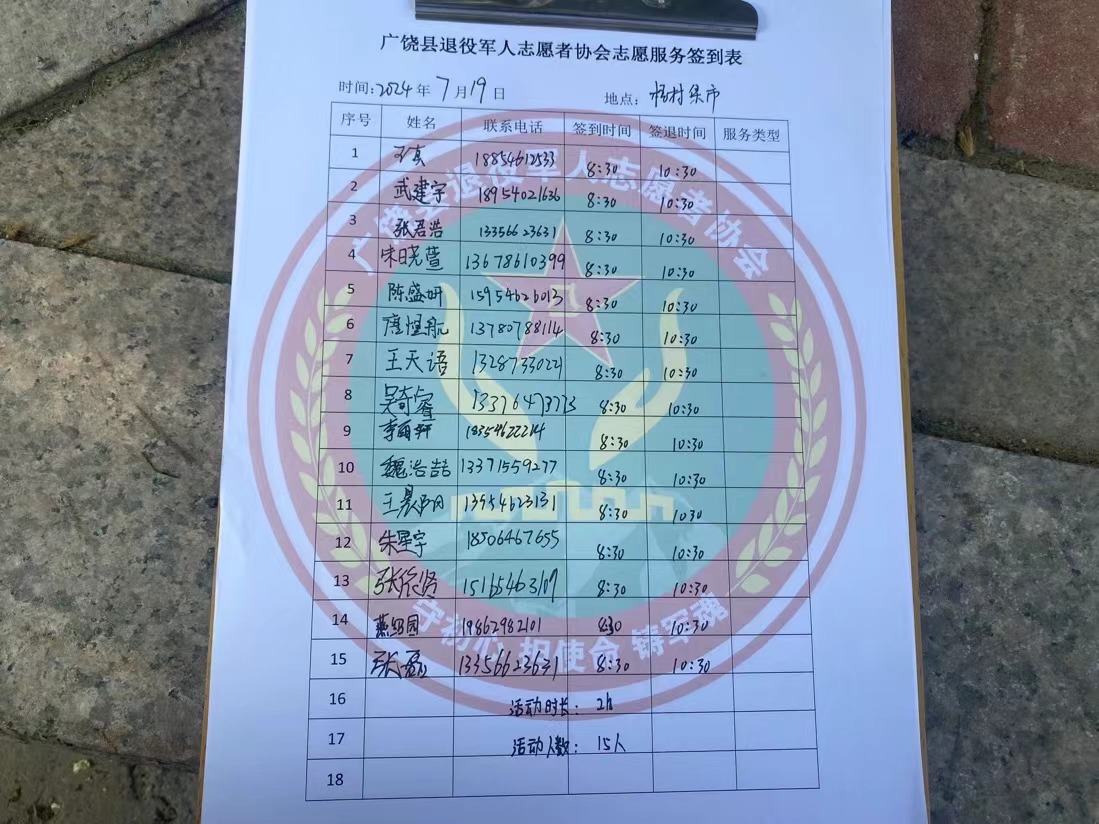 广饶县退役军人志愿者协会志愿服务签到表
时间: 2024 年 7 月 19 日 地点: 杨村集市
序号 姓名 联系电话 签到时间 签退时间 服务类型
1 18854612533 8:30 10:30
2 武建宇 18954021636 8:30 10:30
3 张君浩 13356623631 8:30 10:30
4 宋晓萱 13678610399 8:30 10:30
5 陈盛妍 15954626013 8:30 10:30
6 唐恒航 13780788114 8:30 10:30
7 王天语 13287330221 8:30 10:30
8 吴奇睿 13376473773 8:30 10:30
9 李雨轩 18354622214 8:30 10:30
10 魏浩喆 13371559277 8:30 10:30
11 王晨阳 13954623131 8:30 1030
12 朱星宇 18506467655 8:30 10:30
13 15165463107 8:30 10:30
14 19862982101 8:30 10:30
15 张磊 13356623631 8:30 10:30
16 活动时长: 2h
17 活动人数: 15人
18
广饶县退役军人志愿者协会
守初心 担使命 铸军魂